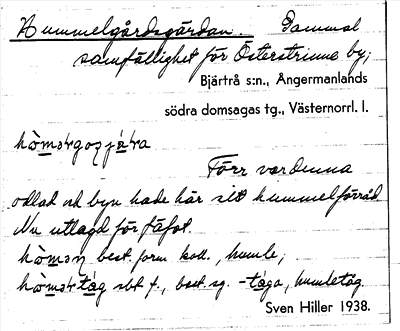 Hummelgårdsgärdan. Gammal
samfällighet för Österstrinne by;
Bjärtrå s:n., Ångermanlands
södra domsagas tg., Västernorrl. l.
Förr var denna
odlad och byn hade här sitt hummelförråd.
Nu utlagd för fäfot.
best. form koll., humle;
sbt f., best. sg. -tæga, humletåg.
Sven Hiller 1938.